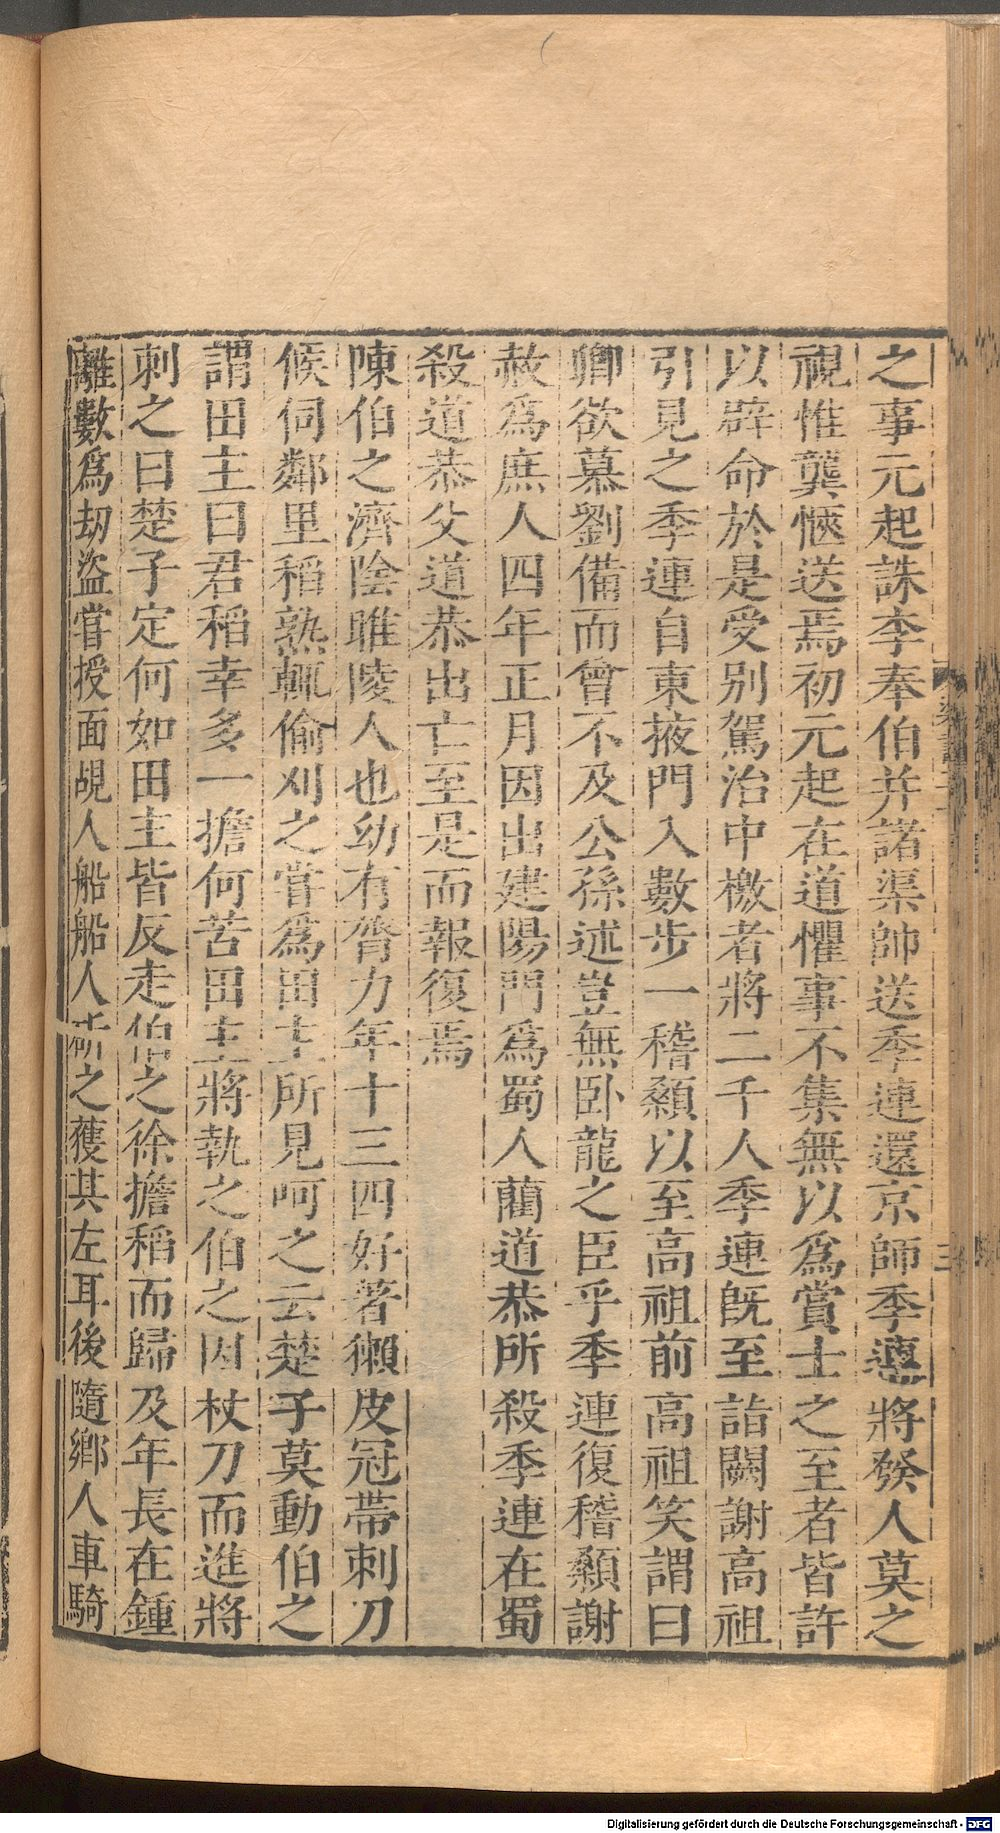 之事元起誅李奉伯并諸渠帥送季連還京師季連將發人莫之
視惟龔愜送焉初元起在道懼事不集無以爲賞士之至者皆許
以辟命於是受别駕治中檄者將二千人季連旣至詣闕謝高祖
引見之季連自東掖門入數步一稽顙以至高祖前高祖笑謂曰
卿欲慕劉備而曾不及公孫述豈無卧龍之臣乎季連復稽顙謝
赦爲庶人四年正月因出建陽門爲蜀人藺道恭所殺季連在蜀
殺道恭父道恭出亡至是而報復焉
陳伯之濟陰睢陵人也幼有膂力年十三四好著獺皮冠帶刺刀
候伺鄰里稻熟輒偷刈之嘗爲田主所見呵之云楚子莫動伯之
謂田主曰君稻幸多一擔何苦田主將執之伯之因杖刀而進將
刺之曰楚子定何如田主皆反走伯之徐擔稻而歸及年長在鍾
離數爲劫盜嘗授面覘人船船人斫之獲其左耳後隨鄉人車騎
Digitalisierung gefördert durch die Deutsche Forschungsgemeinschaft - DFG